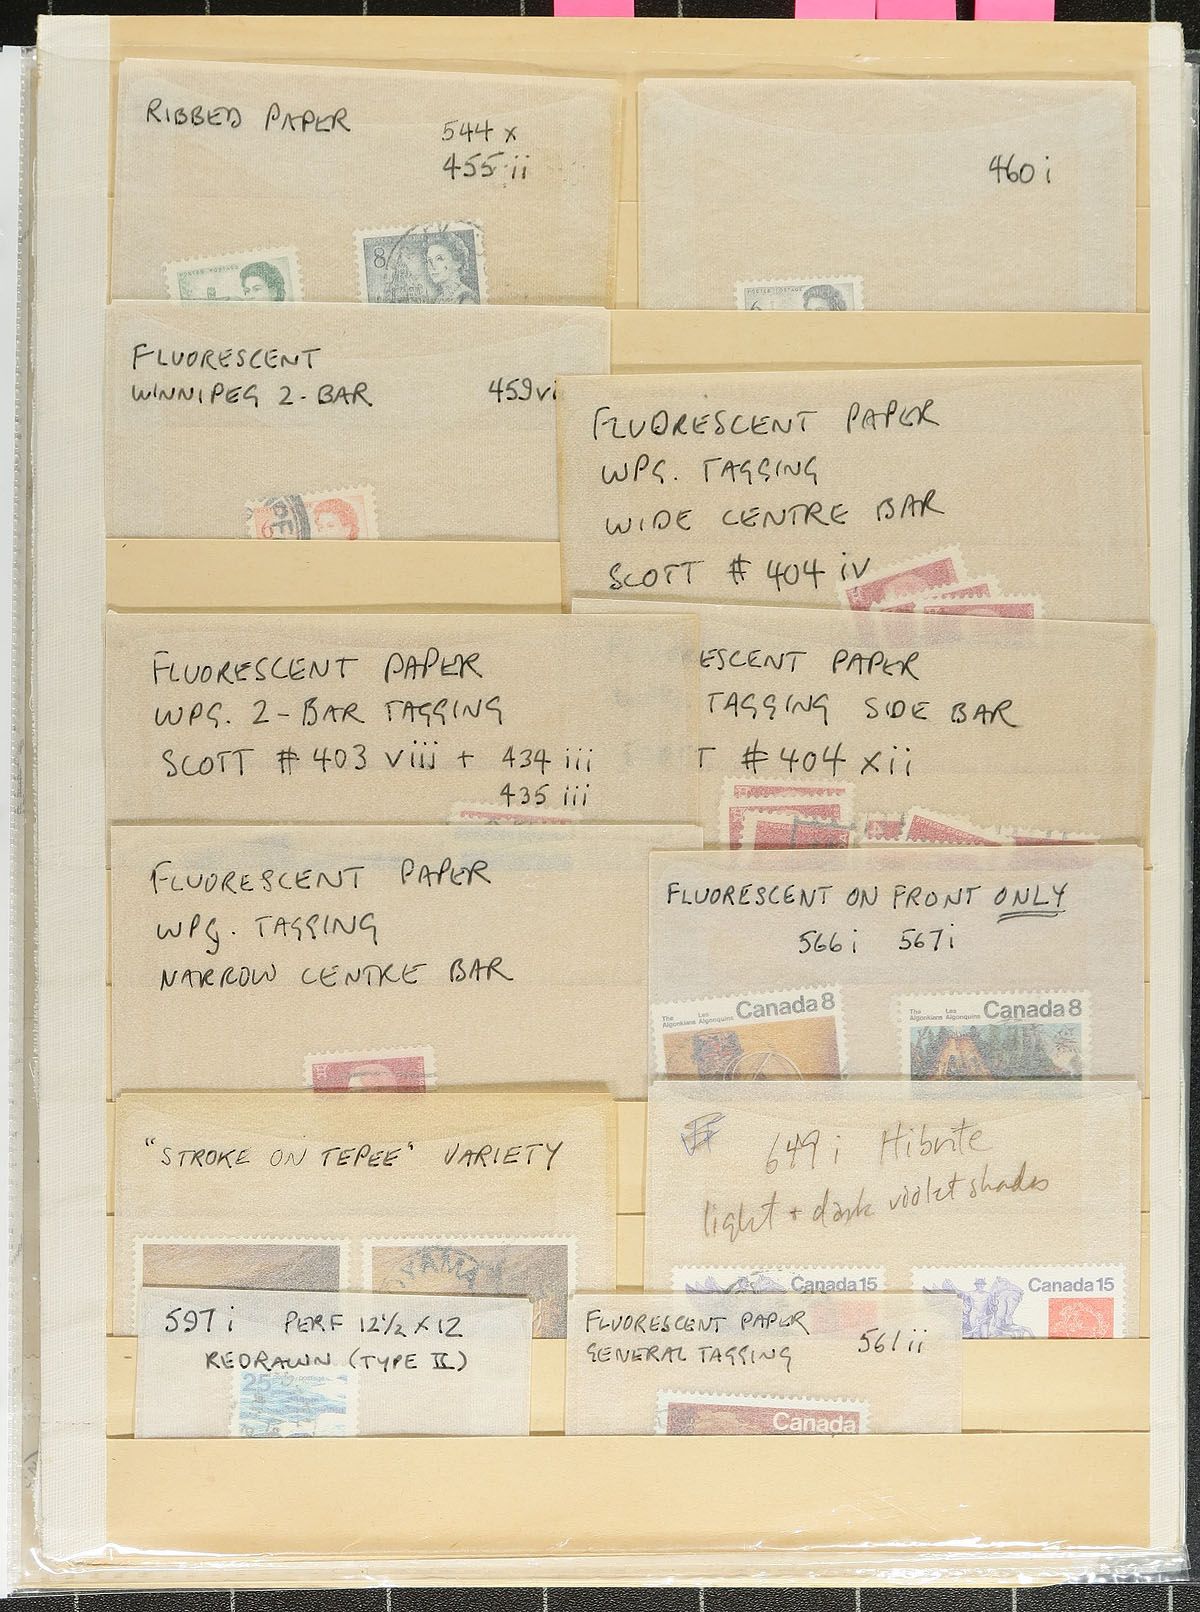 RIBBED PAPER
544 x
455 ii
8
POSTES POSTAGE
460 i
POSTES POSTAGE
6
FLUORESCENT
WINNIPEG 2-BAR 459 vi
6
FLUORESCENT PAPER
WPG. TAGGING
WIDE CENTRE BAR
SCOTT # 404 iv
FLUORESCENT PAPER
WPG. 2-BAR TAGGING
SCOTT # 403 viii + 434 iii
435 iii
ESCENT PAPER
TAGGING SIDE BAR
T # 404 xii
FLUORESCENT PAPER
WPG. TAGGING
NARROW CENTRE BAR
FLUORESCENT ON FRONT ONLY
566 i 567 i
The Algonkians Les Algonquins Canada 8
The Algonkians Les Algonquins Canada 8
"STROKE ON TEPEE" VARIETY
YAMA
649 i Hibrite
light + dark violet shades
Canada 15
Canada 15
597 i PERF 12½ X 12
REDRAWN (TYPE II)
25
FLUORESCENT PAPER
GENERAL TAGGING 561 ii
Canada